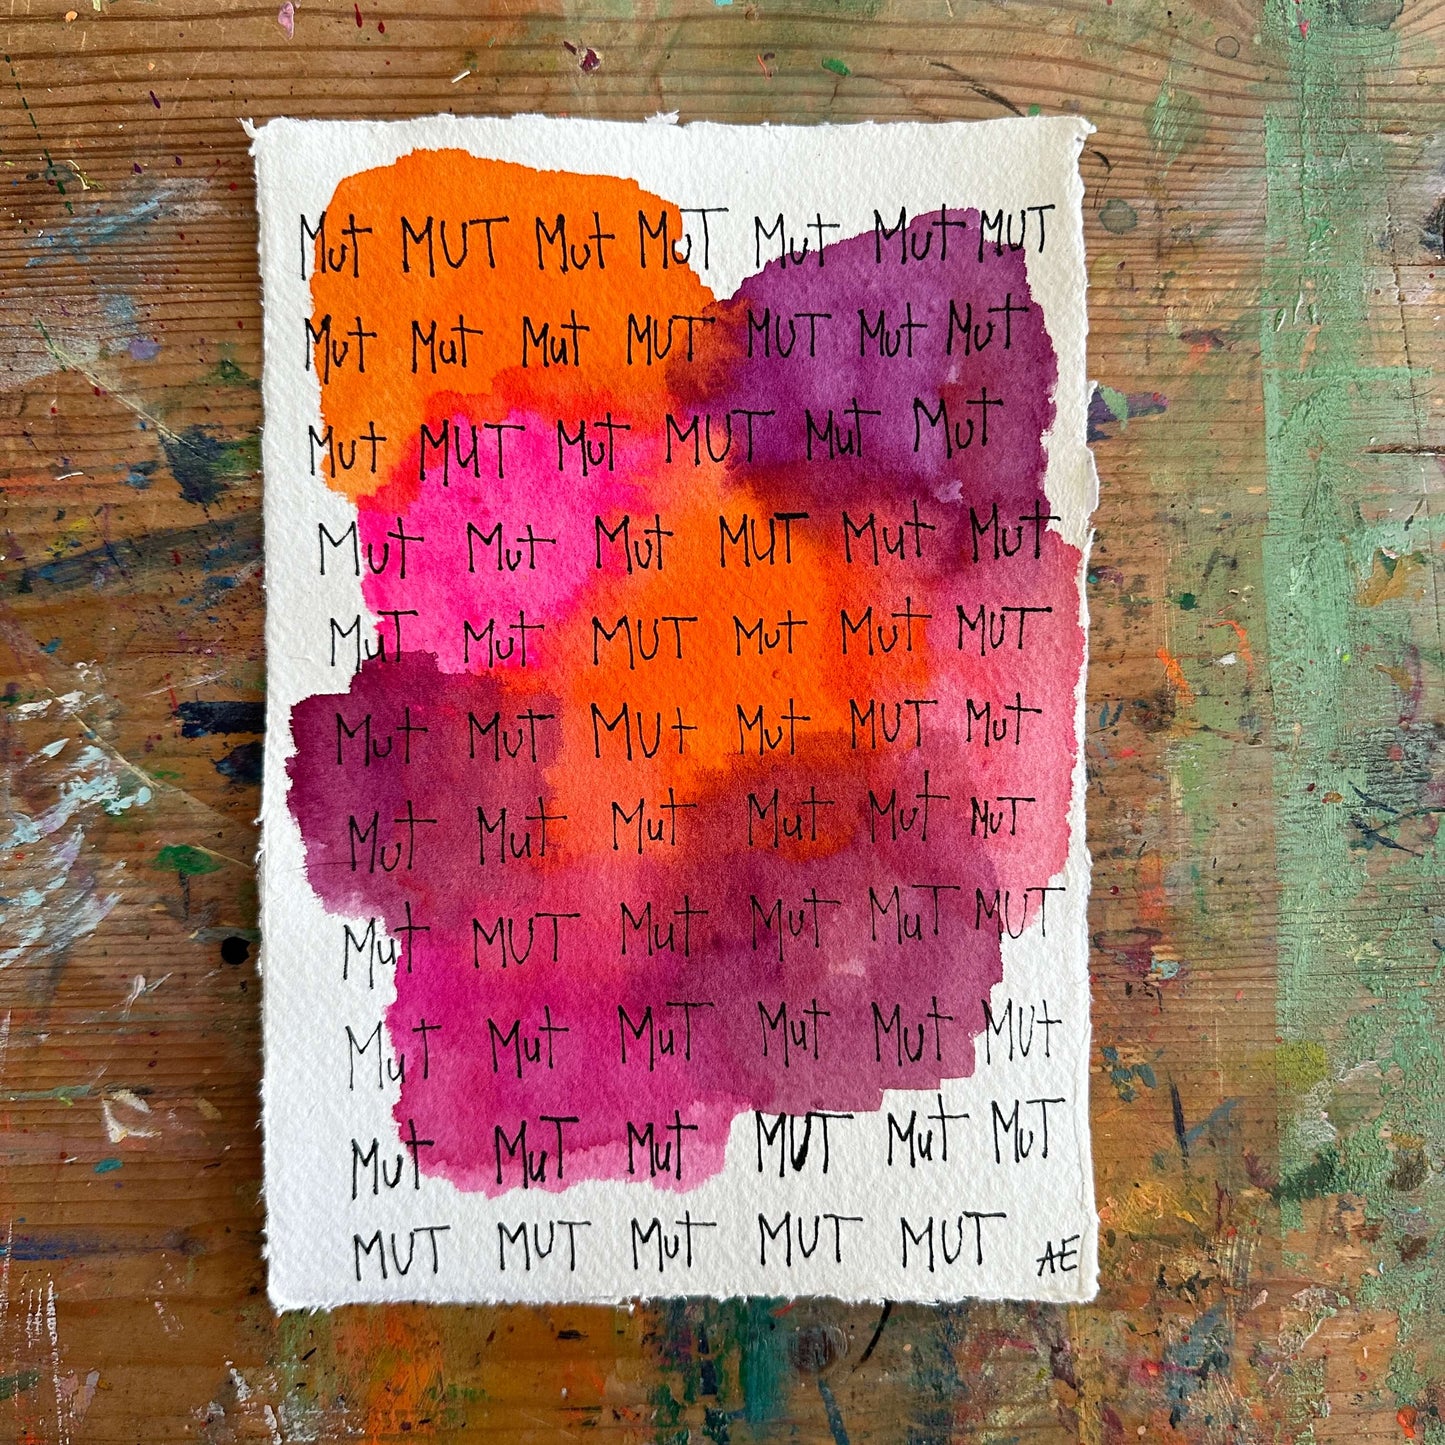 Mut MUT Mut MuT Mut Mut MUT
Mut Mut Mut MUT MUT Mut Mut
Mut MUT Mut MUT Mut Mut
Mut Mut Mut MUT Mut Mut
MuT Mut MUT Mut Mut MUT
Mut MuT MUt Mut MUT Mut
Mut Mut Mut Mut Mut MuT
Mut MUT Mut Mut MuT MUT
MuT Mut MuT Mut Mut MUt
Mut MuT Mut MUT Mut MuT
MUT MUT Mut MUT MUT AE